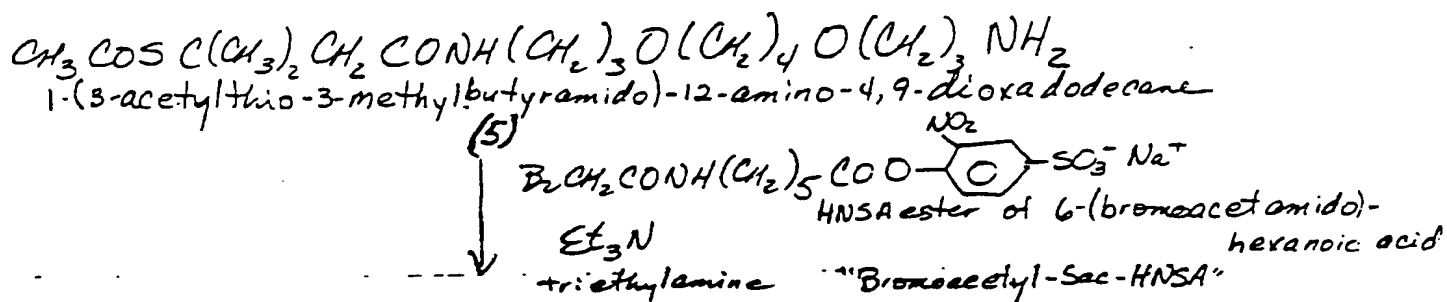 CH3 COS C(CH3)2 CH2 CONH(CH2)3 O(CH2)4 O(CH2)3 NH2
1-(3-acetylthio-3-methylbutyramido)-12-amino-4,9-dioxadodecane
(5)
NO2
BrCH2CONH(CH2)5 COO SO3- Na+
HNSA ester of 6-(bromoacetamido)-
hexanoic acid
Et3N
triethylamine "Bromoacetyl-Sac-HNSA"